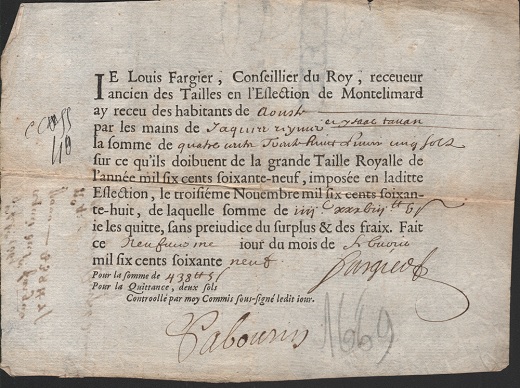 IE Louis Fargier, Conseillier du Roy, receueur
ancien des Tailles en l'Eslection de Montelimard
ay receu des habitants de Aouste
par les mains de Jaques et ysaac tauan
la somme de quatre cents trente huict liures cinq sols
sur ce qu'ils doibuent de la grande Taille Royalle de
l'année mil six cents soixante-neuf, imposée en laditte
Eslection, le troisiéme Nouembre mil six cents soixan-
te-huit, de laquelle somme de iiijᶜ xxxviij tt 5 s
ie les quitte, sans preiudice du surplus & des fraix. Fait
ce neufuiesme iour du mois de
mil six cents soixante neuf
Pour la somme de 438 tt 5 s
Pour la Quittance, deux sols
Controollé par moy Commis sous-signé ledit iour.
1669